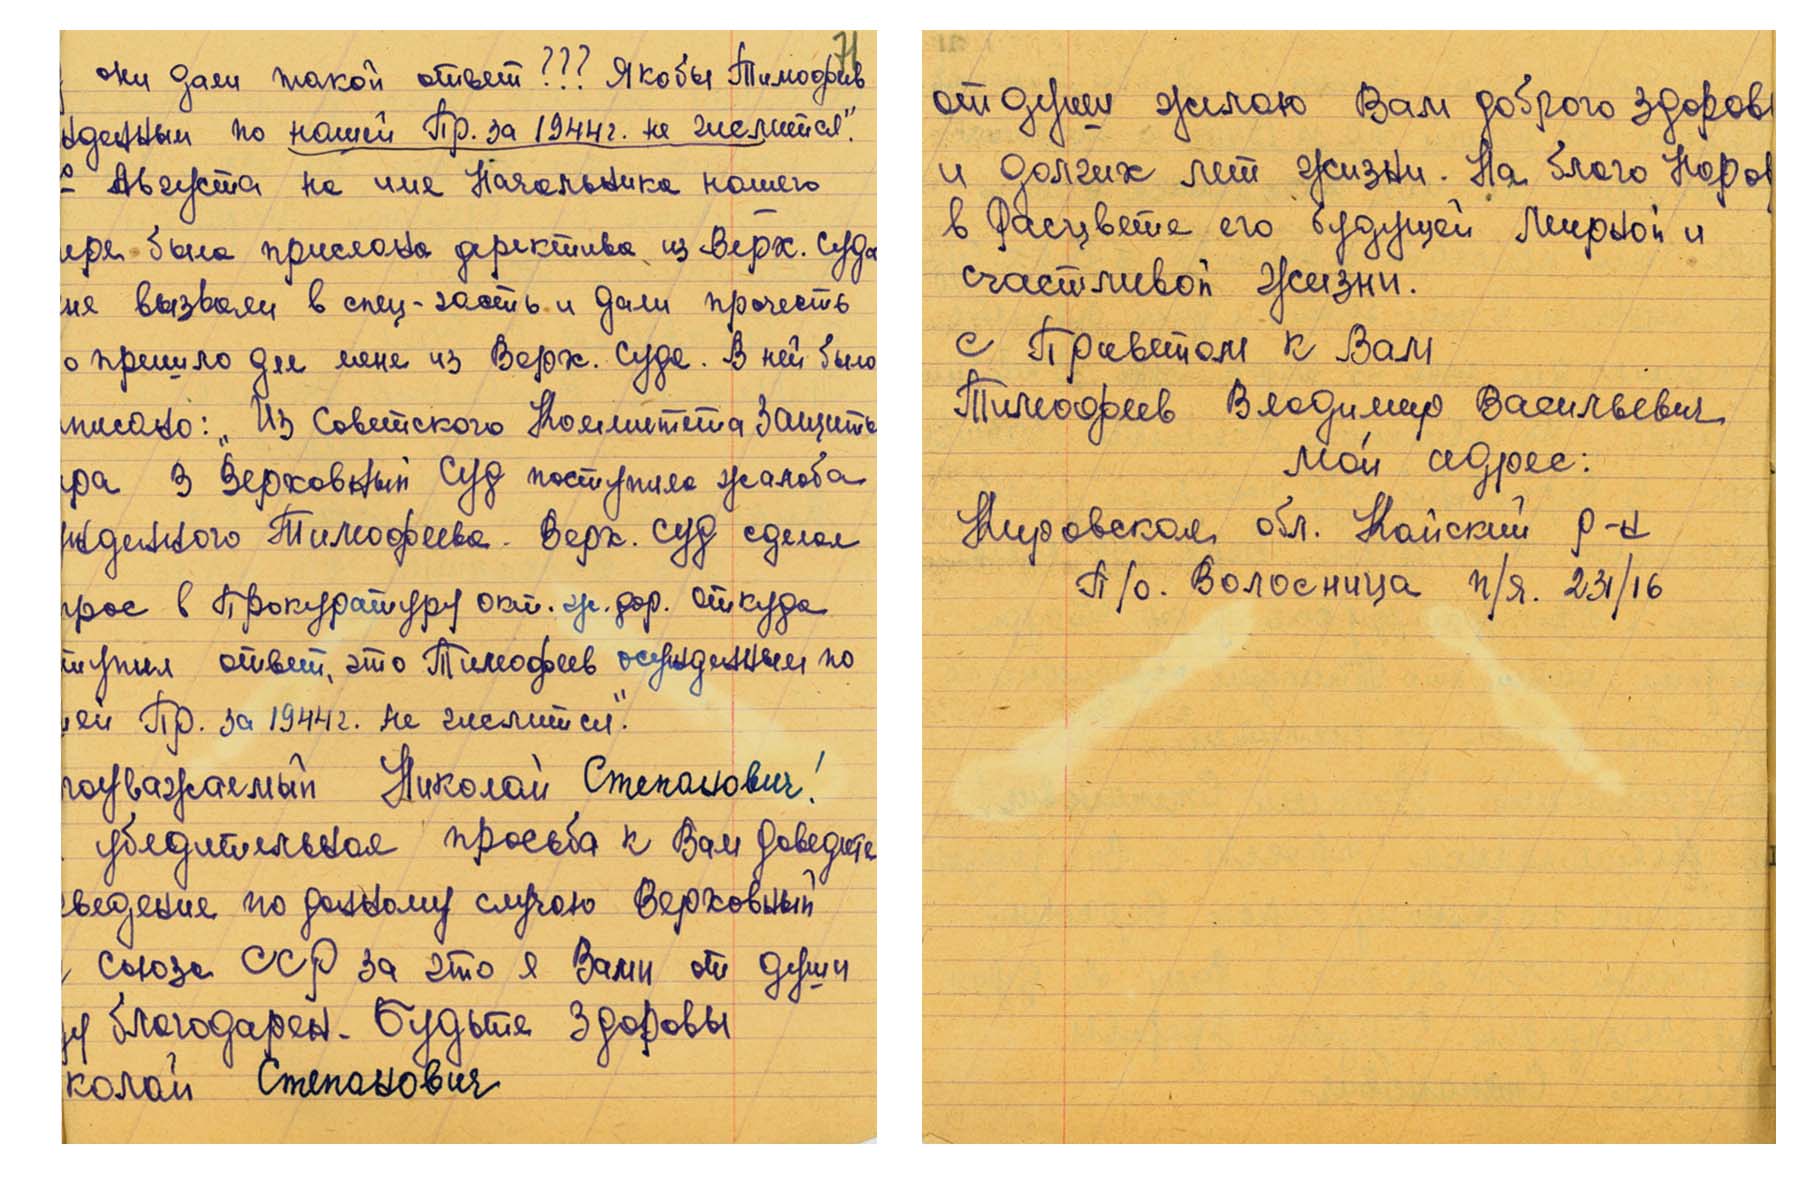 71
они дали такой ответ??? Якобы Тимофеев
жденным по нашей Пр. за 1944г. не числится".
Августа на имя Начальника нашего
ере была прислана деректива из Верх. Суда
ня вызвали в спец-часть и дали прочесть
о пришло для мене из Верх. Суда. В ней было
писано: „Из Советского Комитета Защиты
ра В Верховный Суд поступила жалоба
жденного Тимофеева. Верх. Суд сделал
прос в Прокуратуру окт. ж. дор. откуда
тупил ответ, что Тимофеев осужденным по
шей Пр. за 1944г. не числится".
гоуважаемый Николай Степанович!
убедительная просьба к Вам доведите
сведение по данному случаю Верховный
Союза ССР за это я Вами от души
ду благодарен. Будьте Здоровы
колай Степанович
от души желаю Вам доброго здоров
и долгих лет жизни. На благо Народ
в Расцвете его будущей Мирной и
счастливой Жизни.
с Приветом к Вам
Тимофеев Владимир Васильевич
Мой адрес:
Кировская обл. Кайский р-н
П/о. Волосница п/я. 231/16